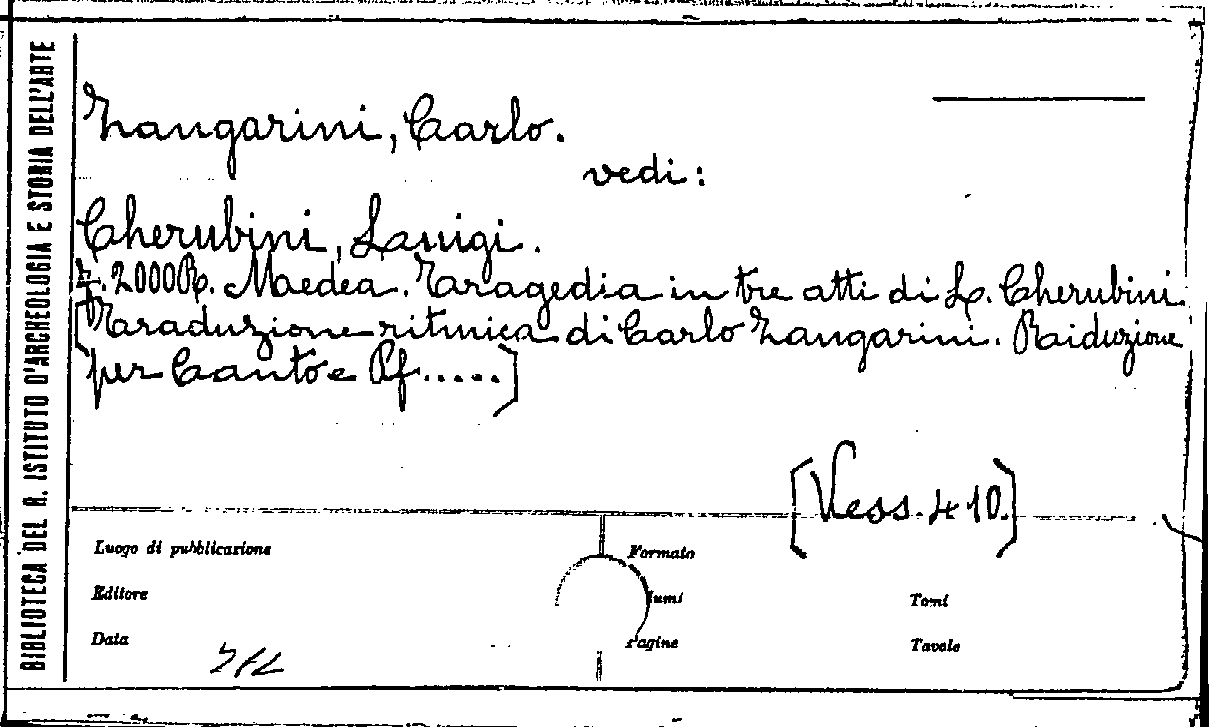 BIBLIOTECA DEL R. ISTITUTO D'ARCHEOLOGIA E STORIA DELL'ARTE
Zangarini, Carlo.
vedi:
Cherubini, Luigi.
2000R. Medea. Tragedia in tre atti di L. Cherubini.
[Traduzione ritmica di Carlo Zangarini. Riduzione
per Canto e Pf.....]
[Vess. 410.]
Luogo di pubblicazione
Formato
Editore
lumi
Tomi
Data
Pagine
Tavole